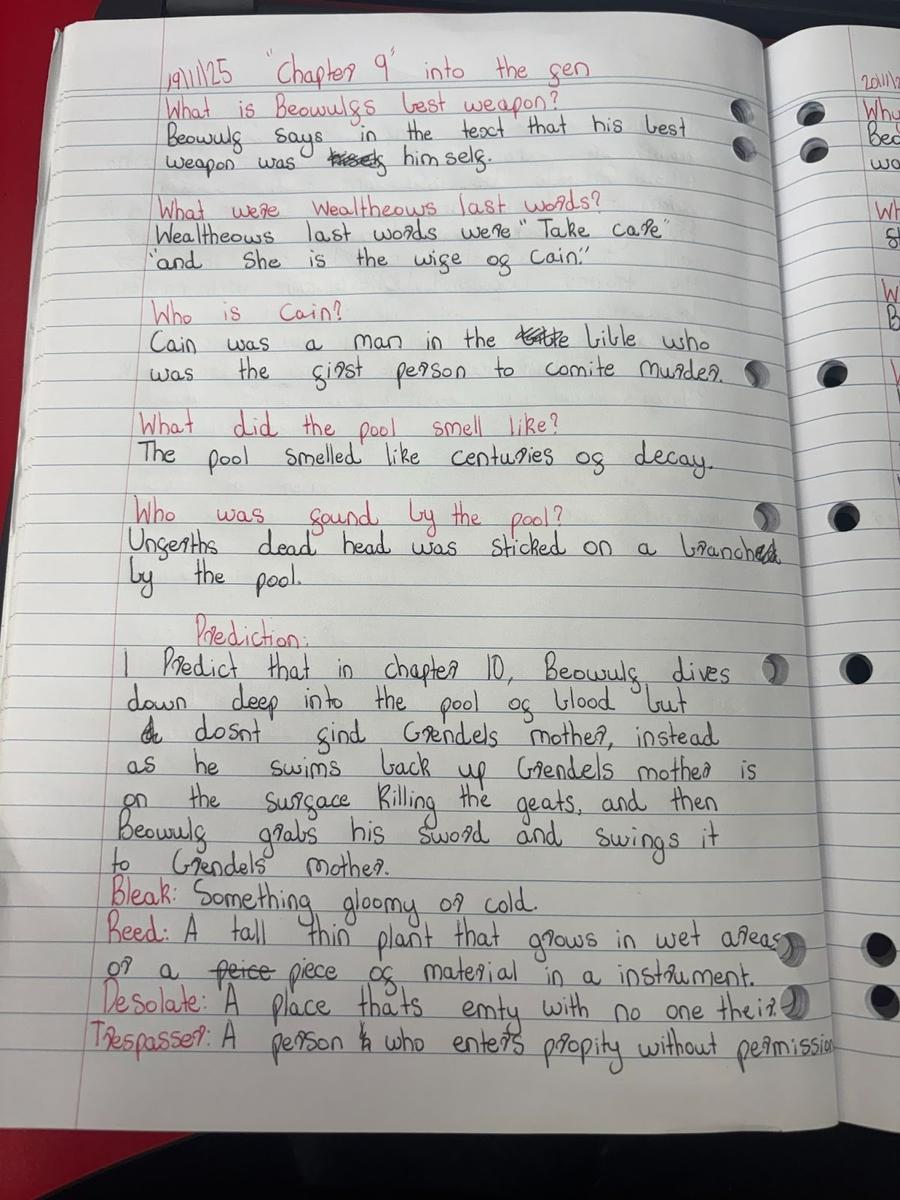 19/11/25 "Chapter 9" into the fen
What is Beowulfs best weapon?
Beowulf says in the text that his best
weapon was him self.
What were Wealtheows last words?
Wealtheows last words were "Take care"
"and She is the wife of Cain."
Who is Cain?
Cain was a man in the bible who
was the first person to comite murder.
What did the pool smell like?
The pool smelled like centuries of decay.
Who was found by the pool?
Unferths dead head was sticked on a branch
by the pool.
Prediction:
I Predict that in chapter 10, Beowulf dives
down deep into the pool of blood but
dosnt find Grendels mother, instead
as he swims back up Grendels mother is
on the surface killing the geats, and then
Beowulf grabs his sword and swings it
to Grendels mother.
Bleak: Something gloomy or cold.
Reed: A tall thin plant that grows in wet areas
or a peice piece of material in a instrument.
Desolate: A place thats emty with no one their.
Trespasser: A person who enters propity without permission
Why
Bec
wo
Wh
W
B